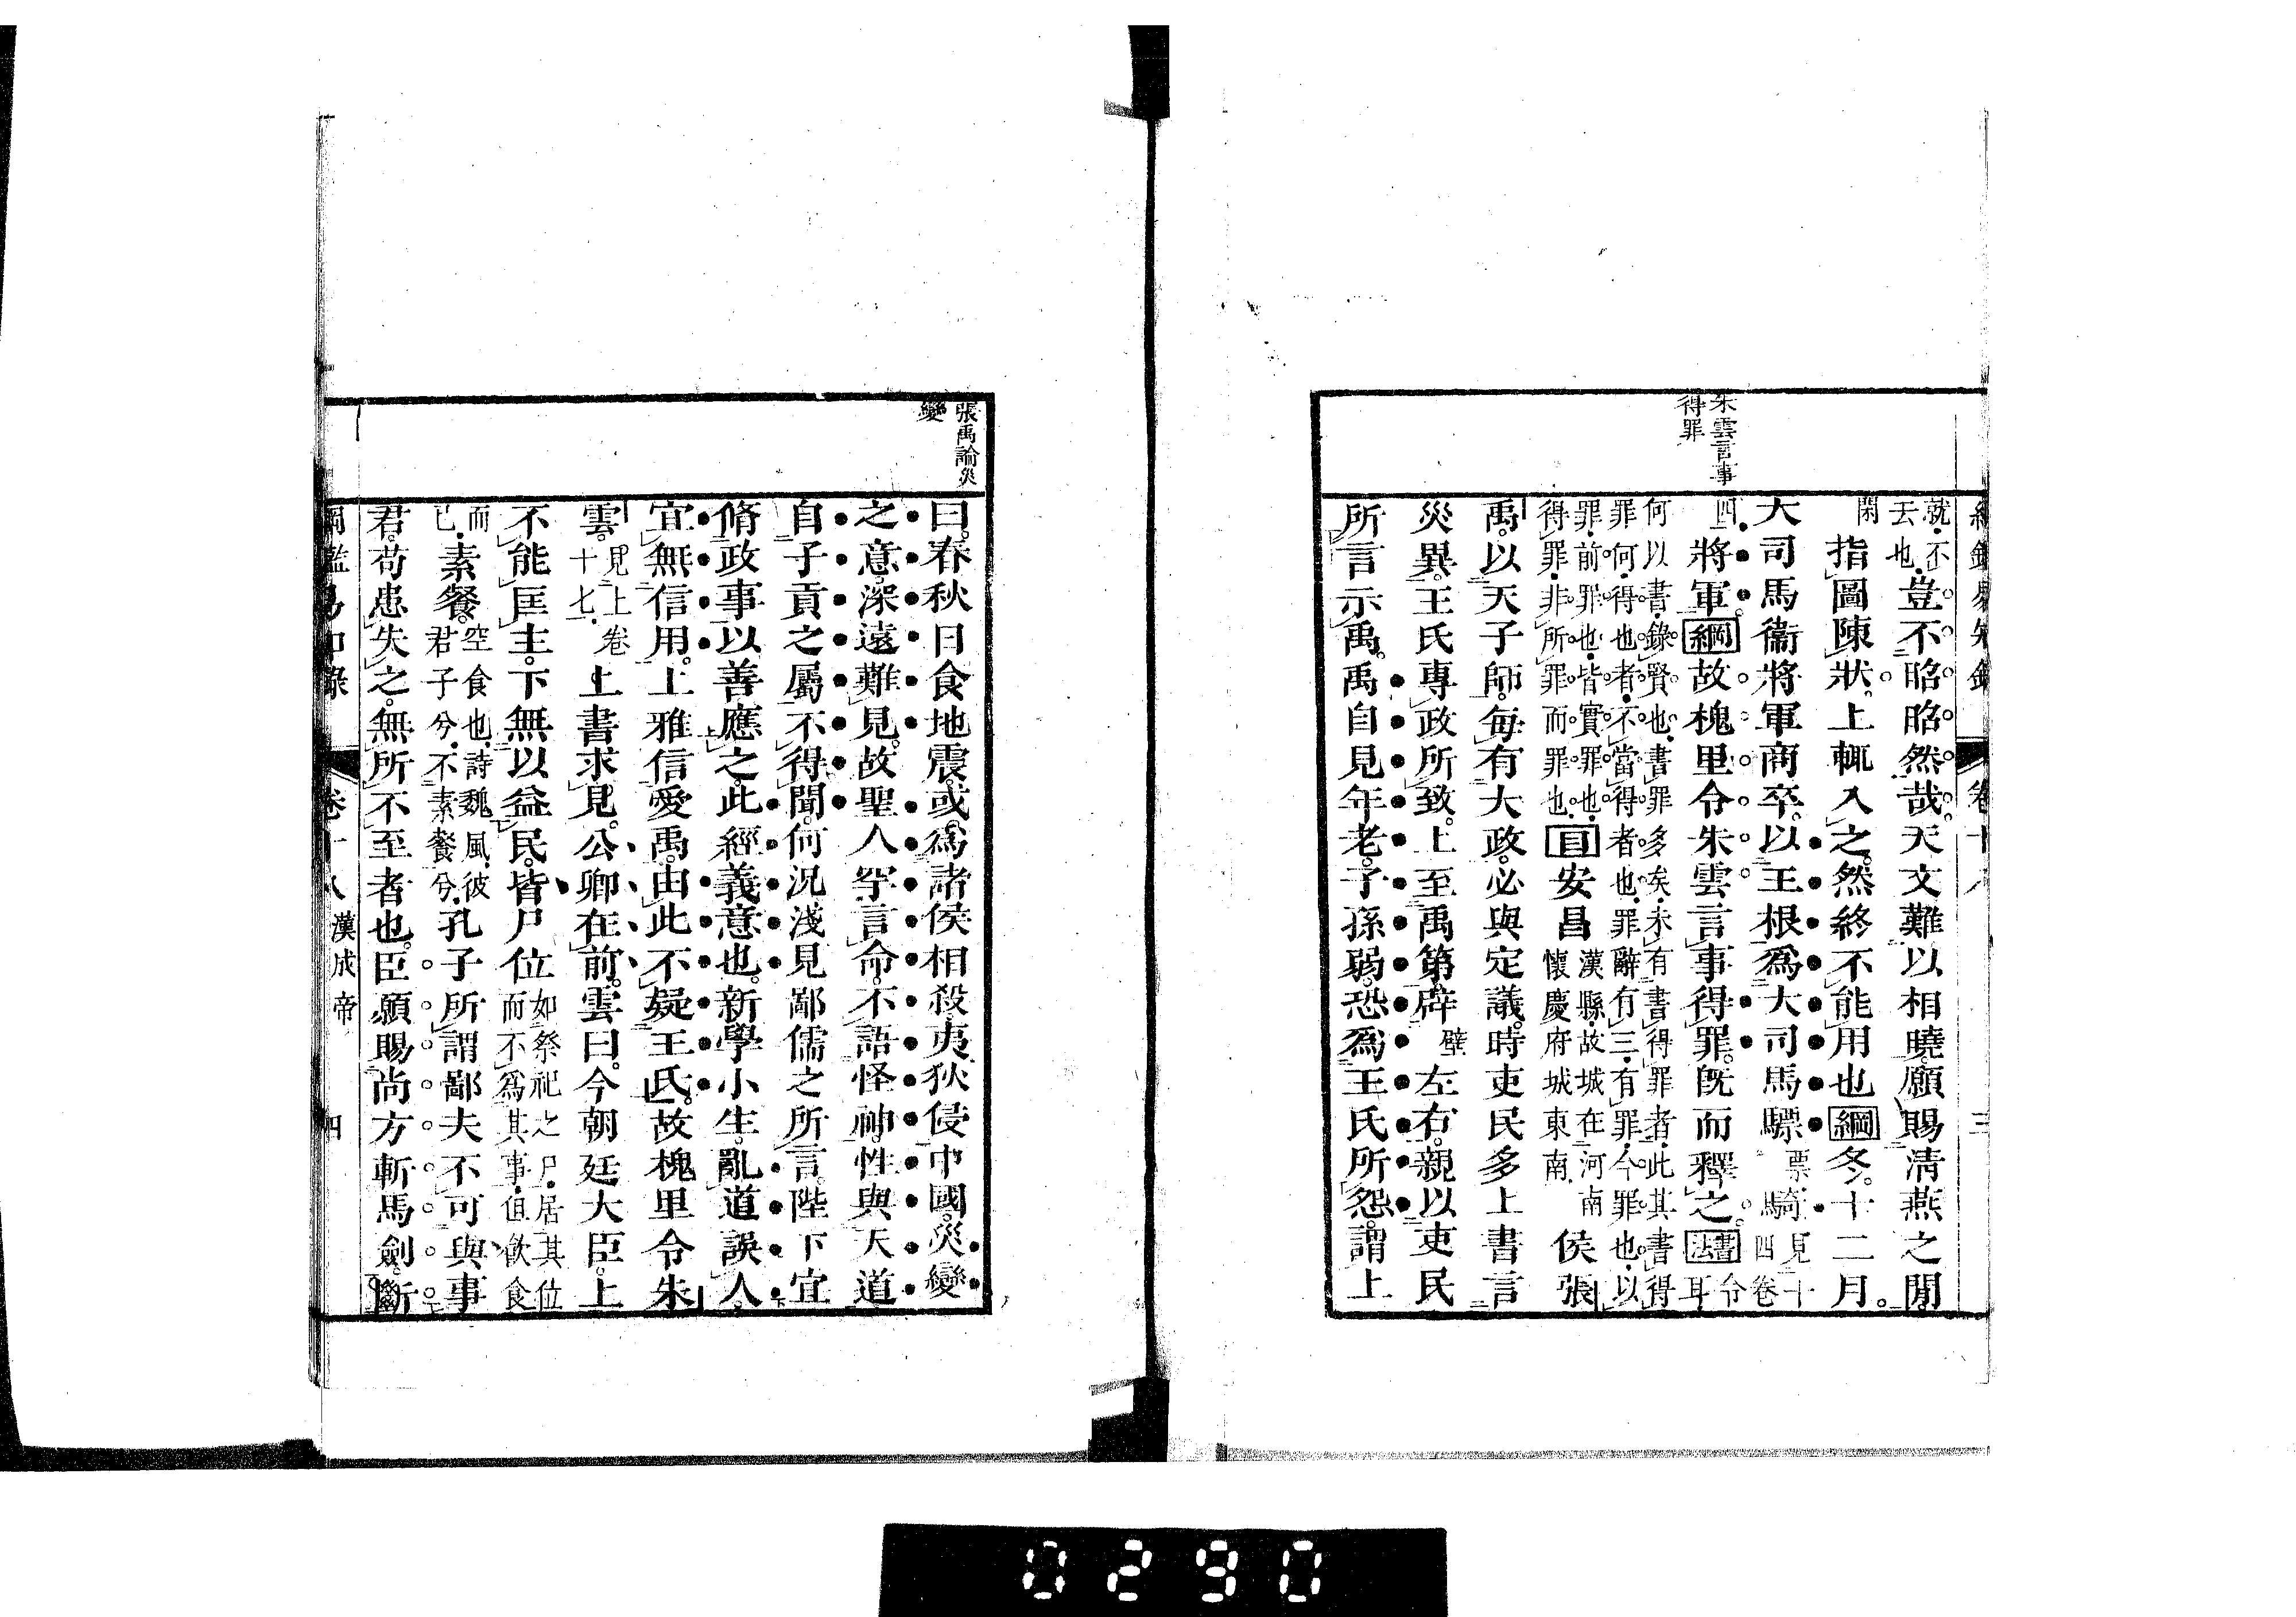 綱鑑易知錄 卷十八 三
朱雲言事
得罪
就.不
去也.
豈不昭昭然哉。天文難以相曉。願賜清燕之閒。
閑
指圖陳狀。上輒入之。然終不能用也綱冬。十二月。
大司馬衞將軍商卒。以王根爲大司馬驃
票
騎
見十
四卷
四.
將軍綱故槐里令朱雲言事得罪。既而釋之。書法
令
耳
何以書.錄賢也.書罪多矣.未有書得罪者.此其書得
罪何.得也者.不當得者也.罪辭有三.有罪.今罪也.以
罪.前罪也.皆實罪也.
得罪.非所罪而罪也.
目安昌
漢縣.故城在河南
懷慶府城東南.
侯張
禹。以天子師。每有大政。必與定議。時吏民多上書言
災異。王氏專政所致。上至禹第。辟壁左右。親以吏民
所言示禹。禹自見年老。子孫弱。恐爲王氏所怨。謂上
張禹論災
變
曰。春秋日食地震。或爲諸侯相殺。夷狄侵中國。災變
之意。深遠難見。故聖人罕言命。不語怪神。性與天道
自子貢之屬。不得聞。何況淺見鄙儒之所言。陛下宜
脩政事以善應之。此經義意也。新學小生。亂道誤人。
宜無信用。上雅信愛禹。由此不疑王氏。故槐里令朱
雲。
見上卷
十七.
上書求見。公卿在前。雲曰。今朝廷大臣。上
不能匡主。下無以益民。皆尸位
如祭祀之尸.居其位
而不爲其事.但飲食
而
已.
素餐。
空食也.詩魏風.彼
君子兮.不素餐兮.
孔子所謂鄙夫不可與事
君。苟患失之。無所不至者也。臣願賜尚方斬馬劍。斷
綱鑑易知錄 卷十八 漢成帝 四
0290